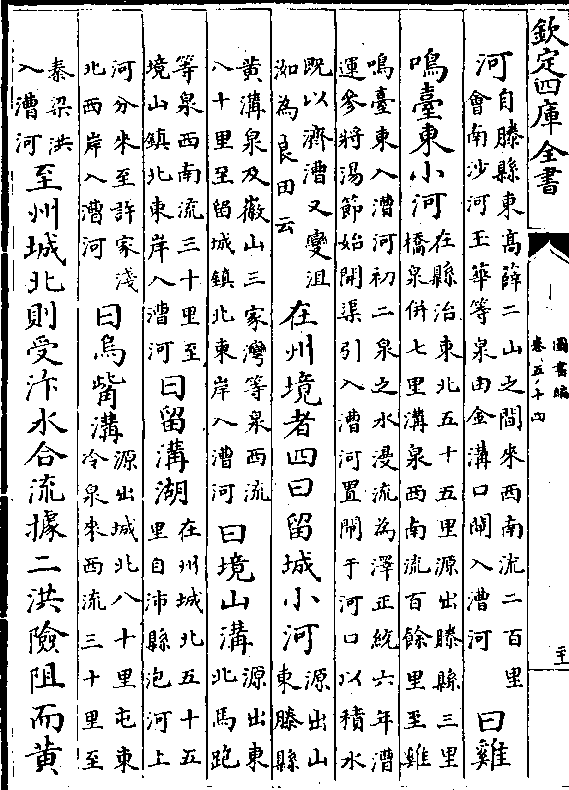 欽定四庫全書
圖書編
卷五十四
河自滕縣東高薛二山之間來西南流二百里
會南沙河玉華等泉由金溝口閘入漕河曰雞
鳴臺東小河在縣治東北五十五里源出滕縣三里
橋泉併七里溝泉西南流百餘里至雞
鳴臺東入漕河初二泉之水漫流為澤正統六年漕
運參將湯節始開渠引入漕河置閘于河口以積水
既以濟漕又變沮
洳為良田云在州境者四曰留城小河源出山
東滕縣
黃溝泉及微山三家灣等泉西流
八十里至留城鎮北東岸入漕河曰境山溝源出東
北馬跑
等泉西南流三十里至
境山鎮北東岸入漕河曰留溝湖在州城北五十五
里自沛縣泡河上
河分來至許家淺
北西岸入漕河曰烏觜溝源出城北八十里屯東
冷泉來西流三十里至
秦梁洪
入漕河至州城北則受汴水合流據二洪險阻而黃